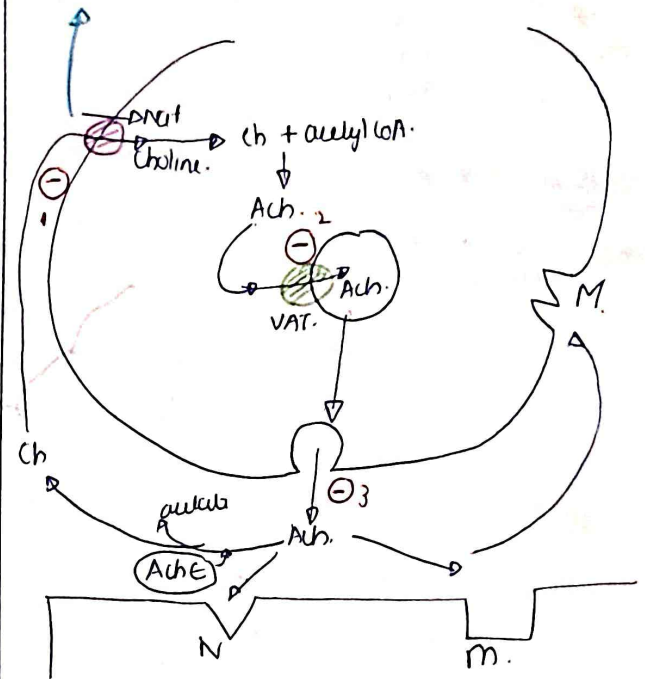 Na+
Choline.
Ch + acetyl CoA.
1
Ach.
2
Ach.
VAT.
M.
Ch
3
acetate
Ach.
AchE
N
m.